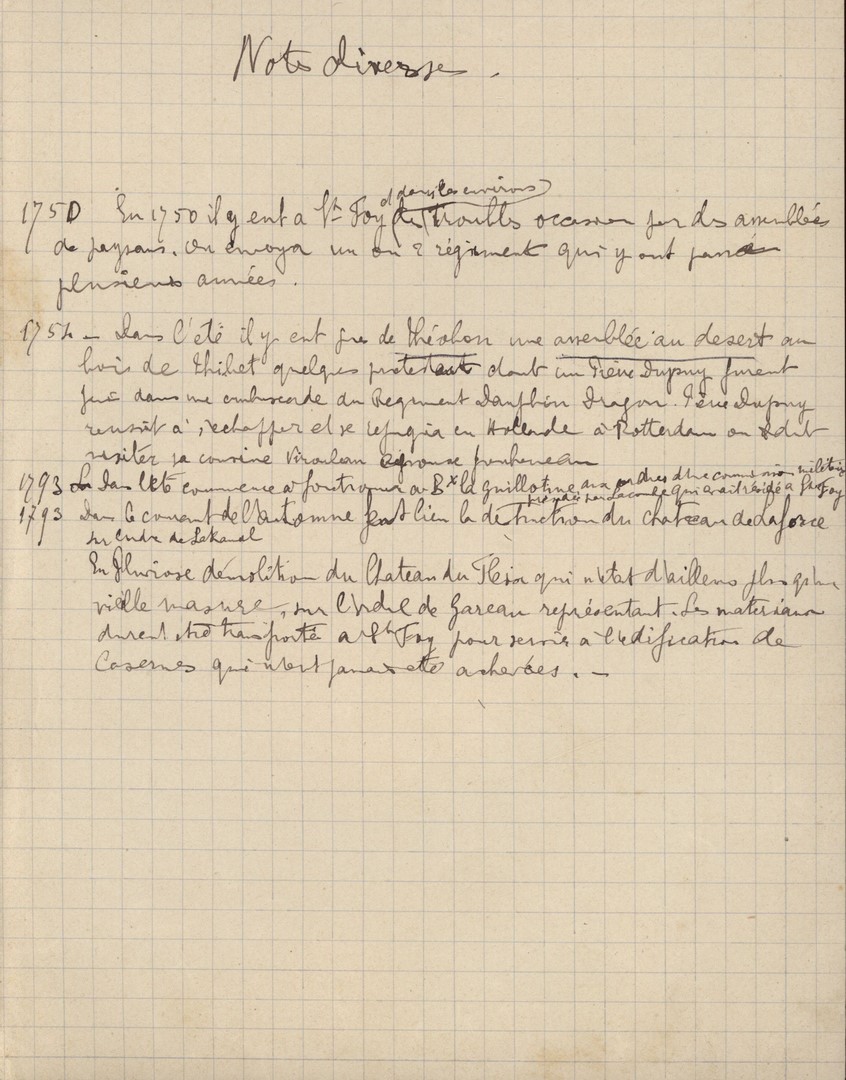 Notes diverses.
et dans les environs
1750 En 1750 il y eut a Ste Foy des troubles ocasion par des assemblées
de paysans. On envoya un ou 2 régiment qui y ont passé
plusieurs années.
1754 - Dans l'été il y eut près de Théobon une assemblée au desert au
bois de Thibet quelques protestants dont un Pierre Dupuy furent
pris dans une embuscade du Regiment Dauphin Dragon. Pierre Dupuy
reussit à s'echapper et se refugia en Hollande à Rotterdam ou
visiter sa cousine épouse
1793 Dans l'été commence a fonctionner a Bx la guillotine aux ordres d'une commission militaire
présidée par Lacombe qui avait résidé a Ste Foy
1793 Dans le courant de l'automne eut lieu la destruction du chateau de Laforce
sur l'ordre de Lakanal
En Pluviose démolition du Chateau du Fleix qui n'etait d'ailleurs plus qu'une
vieille masure, sur l'ordre de Gareau représentant. Les materiaux
durent etre transporté a Ste Foy pour servir a l'édification de
Casernes qui n'ont jamais été achevées. -